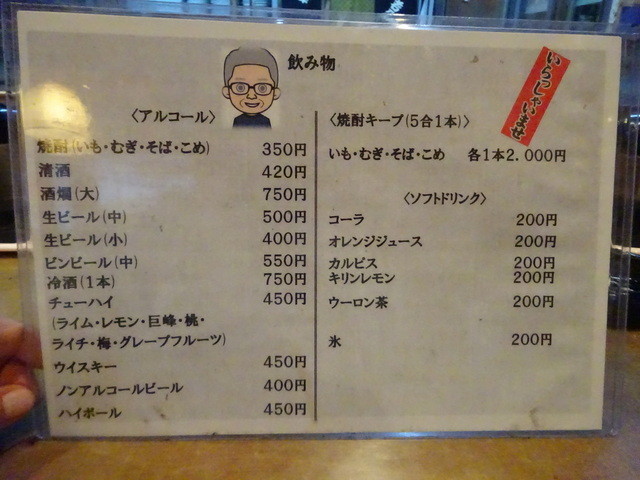 飲み物
いらっしゃいませ
〈アルコール〉
焼酎(いも・むぎ・そば・こめ) 350円
清酒 420円
酒燗(大) 750円
生ビール(中) 500円
生ビール(小) 400円
ビンビール(中) 550円
冷酒(1本) 750円
チューハイ 450円
(ライム・レモン・巨峰・桃・
ライチ・梅・グレープフルーツ)
ウイスキー 450円
ノンアルコールビール 400円
ハイボール 450円
〈焼酎キープ(5合1本)〉
いも・むぎ・そば・こめ 各1本2.000円
〈ソフトドリンク〉
コーラ 200円
オレンジジュース 200円
カルピス 200円
キリンレモン 200円
ウーロン茶 200円
氷 200円